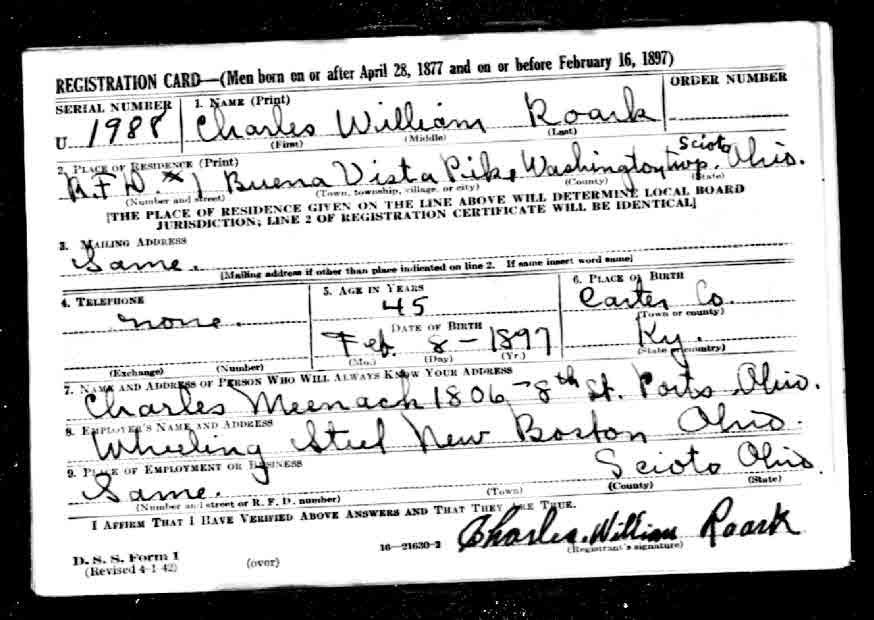 REGISTRATION CARD—(Men born on or after April 28, 1877 and on or before February 16, 1897)
SERIAL NUMBER 1. NAME (Print) ORDER NUMBER
U 1988 Charles William Roark
(First) (Middle) (Last)
2. PLACE OF RESIDENCE (Print)
R.F.D. # 1 Buena Vista Pike, Washington twp. Scioto Ohio.
(Number and street) (Town, township, village, or city) (County) (State)
[THE PLACE OF RESIDENCE GIVEN ON THE LINE ABOVE WILL DETERMINE LOCAL BOARD
JURISDICTION; LINE 2 OF REGISTRATION CERTIFICATE WILL BE IDENTICAL]
3. MAILING ADDRESS
Same.
[Mailing address if other than place indicated on line 2. If same insert word same]
4. TELEPHONE 5. AGE IN YEARS 6. PLACE OF BIRTH
none. 45 Carter Co.
DATE OF BIRTH (Town or county)
Feb. 8 - 1897 Ky.
(Exchange) (Number) (Mo.) (Day) (Yr.) (State or country)
7. NAME AND ADDRESS OF PERSON WHO WILL ALWAYS KNOW YOUR ADDRESS
Charles Meenach 1806 - 8th St. Ports Ohio.
8. EMPLOYER'S NAME AND ADDRESS
Wheeling Steel New Boston Ohio.
9. PLACE OF EMPLOYMENT OR BUSINESS
Same. Scioto Ohio.
(Number and street or R. F. D. number) (Town) (County) (State)
I AFFIRM THAT I HAVE VERIFIED ABOVE ANSWERS AND THAT THEY ARE TRUE.
Charles William Roark
D. S. S. Form 1 16—21630-2 (Registrant's signature)
(Revised 4-1-42) (over)